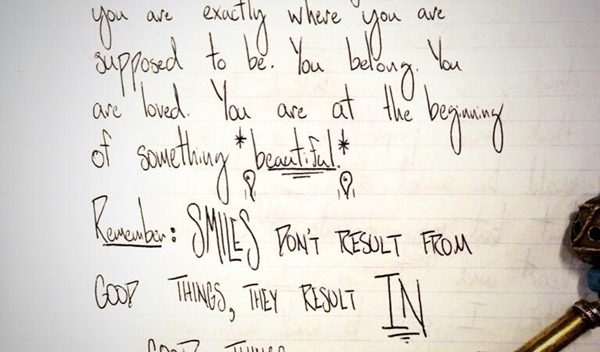 you are exactly where you are
supposed to be. You belong. You
are loved. You are at the beginning
of something *beautiful.*
Remember: SMILES DON'T RESULT FROM
GOOD THINGS, THEY RESULT IN
GOOD THINGS